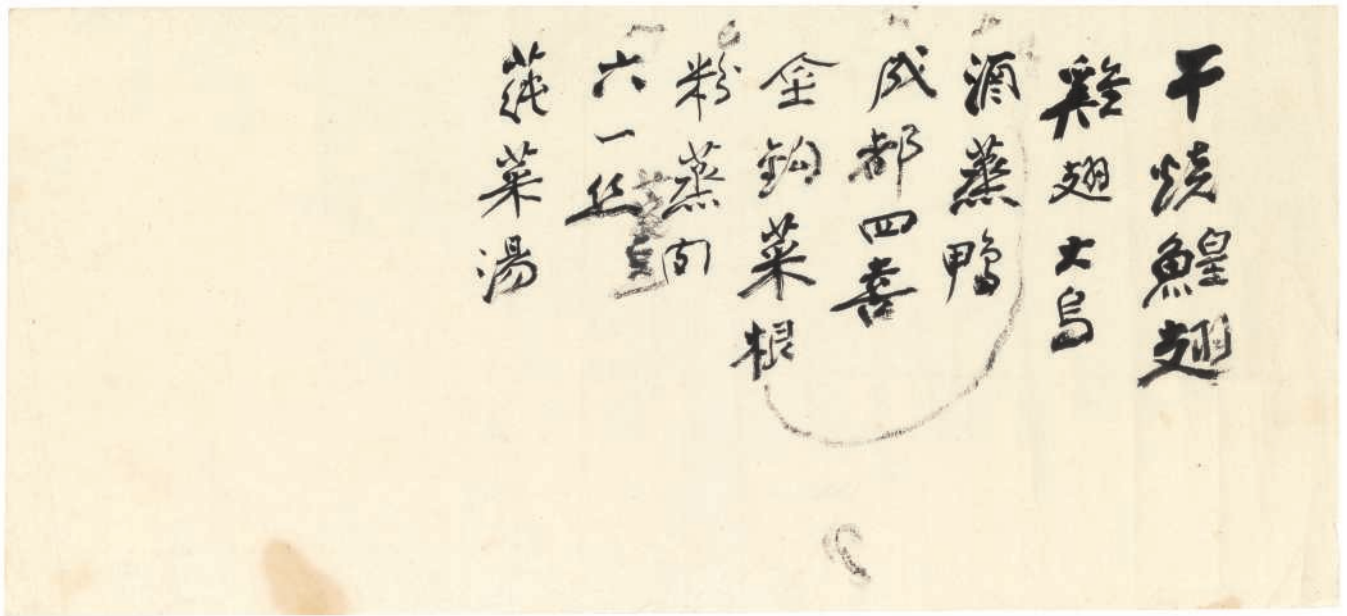 干燒鰉翅
雞翅大烏
酒蒸鴨
成都四喜
金鈎菜根
粉蒸肉
六一丝
蒓菜湯